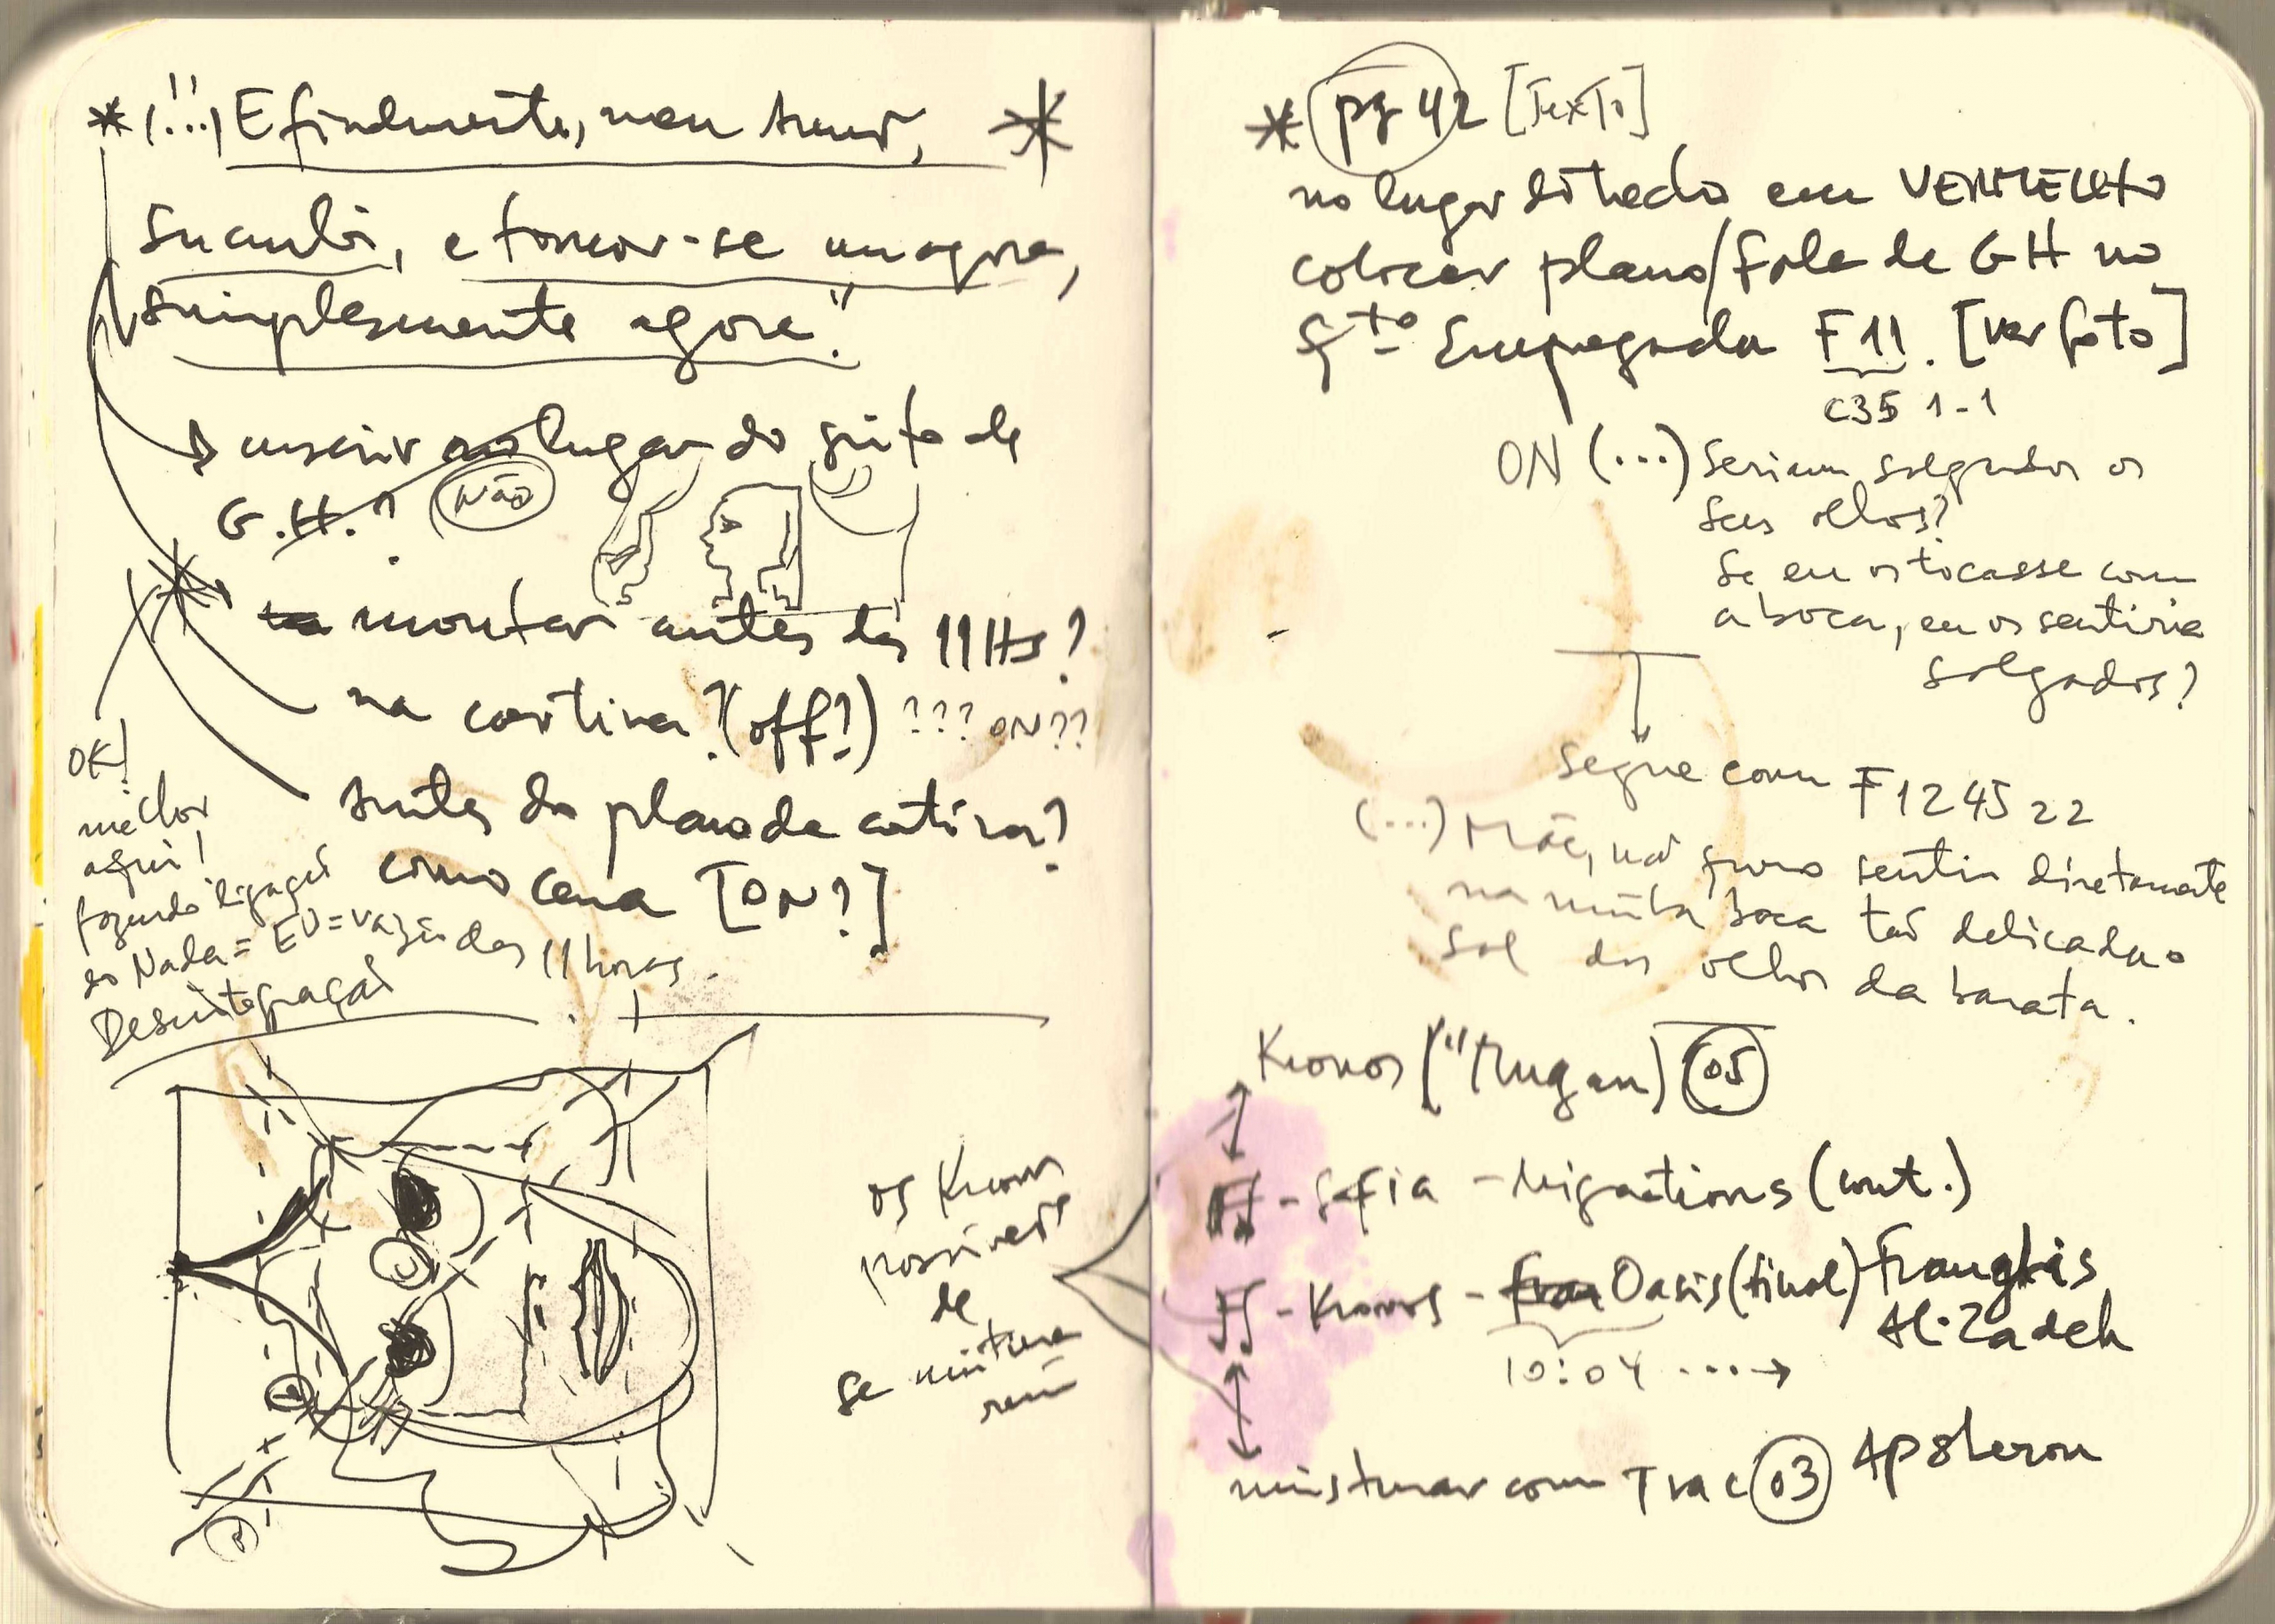 * (...) "E finalmente, meu amor, *
sucumbi, e tornou-se um agora,
simplesmente agora."
→ inserir no lugar do grito de
G.H.? não
montar antes das 11Hs?
na cortina? (off?) ??? ON??
antes do plano da cortina?
como cena [ON?]
OK!
melhor
aqui!
fazendo ligação
do Nada = EU = vazio das 11 horas.
Desintegração
os Kronos
possíveis
de
se mistura
rem
* pg 42 [Texto]
no lugar ditado em VERMELHO
colocar plano/fala de GH no
Qto Empregada F11. [ver foto]
C35 1-1
ON (...) Seriam salgados os
seus olhos?
Se eu os tocasse com
a boca, eu os sentiria
salgados?
segue com F12 45 22
(...) Mãe, não quero sentir diretamente
na minha boca tão delicada o
sal dos olhos da barata.
Kronos ("Mugam) 05
- Sofia - Migrations (cont.)
- Kronos - Oasis (final) Franghis
Ali-Zadeh
10:04 ....→
misturar com Trac 03 Apsheron